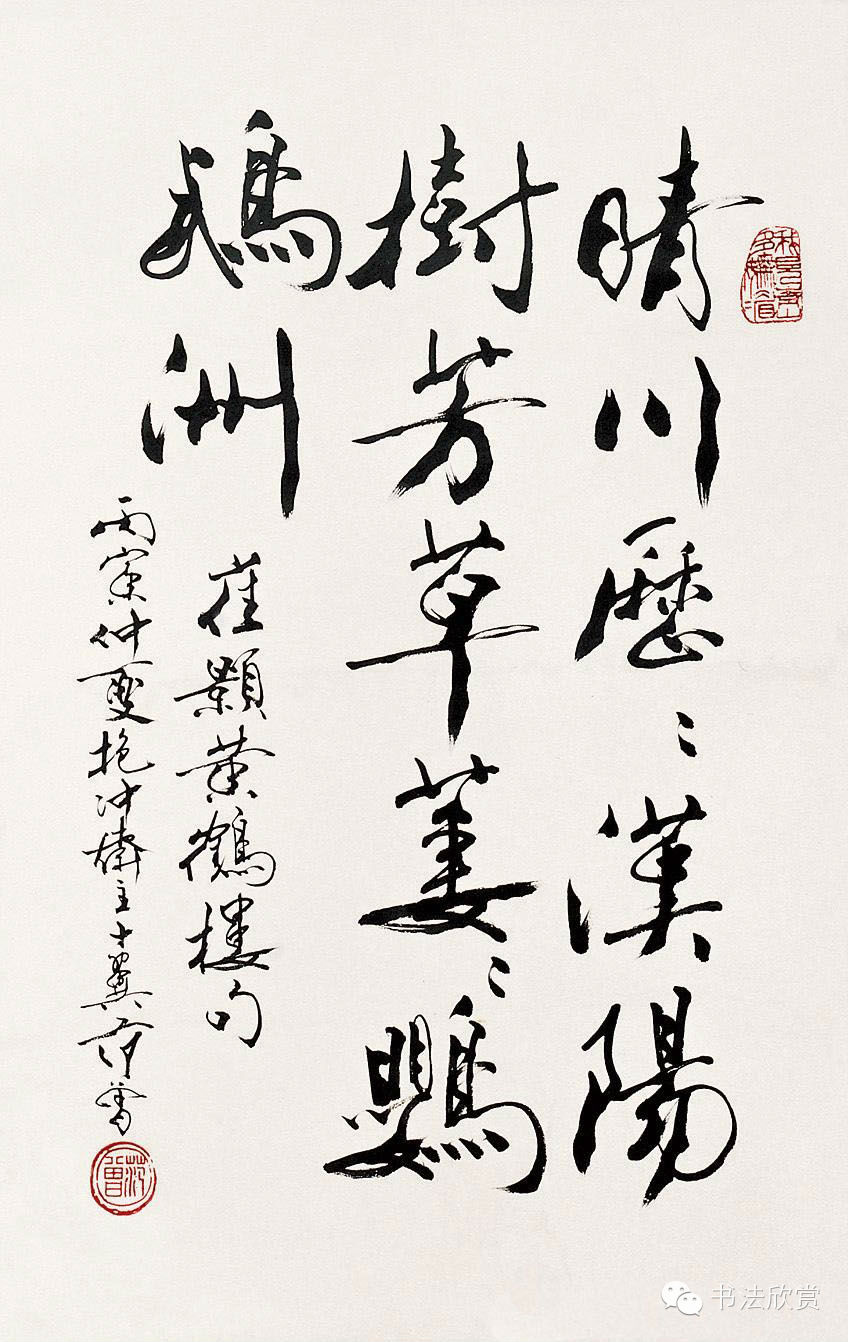 晴川歷〻漢陽
樹芳草萋〻鸚
鵡洲
崔顥黃鶴樓句
丙寅仲夏抱冲齋主十翼范曾
范曾
书法欣赏